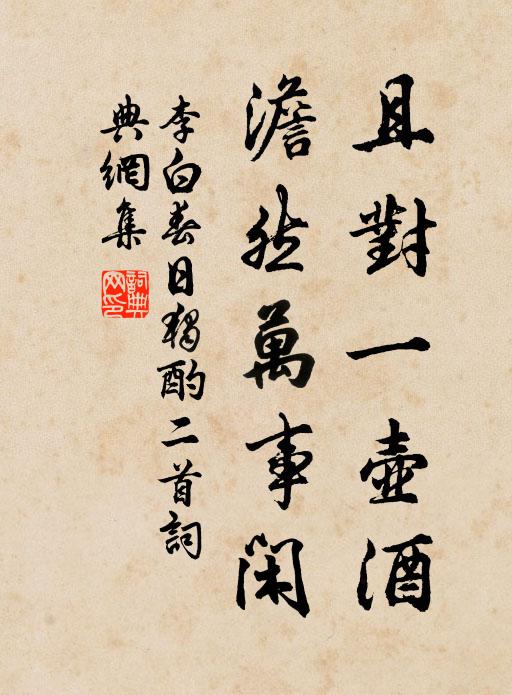 且對一壺酒
澹然萬事閑
李白春日獨酌二首詞
典網集
詞典
网印